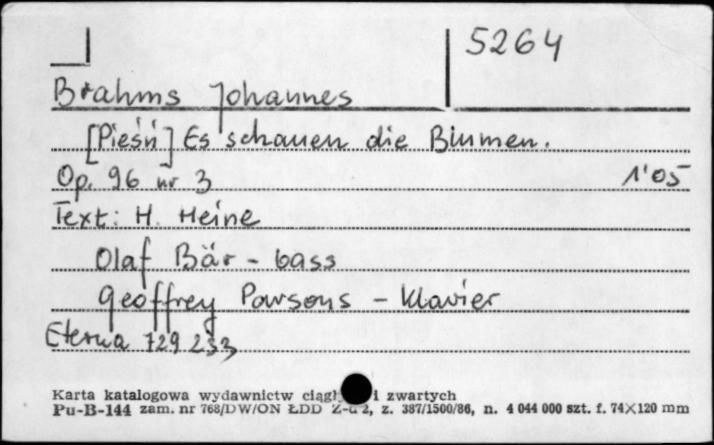 5264
Brahms Johannes
[Pieśń] Es schauen die Blumen.
Op. 96 nr 3 1'05
Text: H. Heine
Olaf Bär - bass
Geoffrey Parsons - Klavier
Eterna 729 233
Karta katalogowa wydawnictw i zwartych
Pu-B-144 zam. nr 768/DW/ON ŁDD z. 387/1500/86, n. 4 044 000 szt. f. 74×120 mm